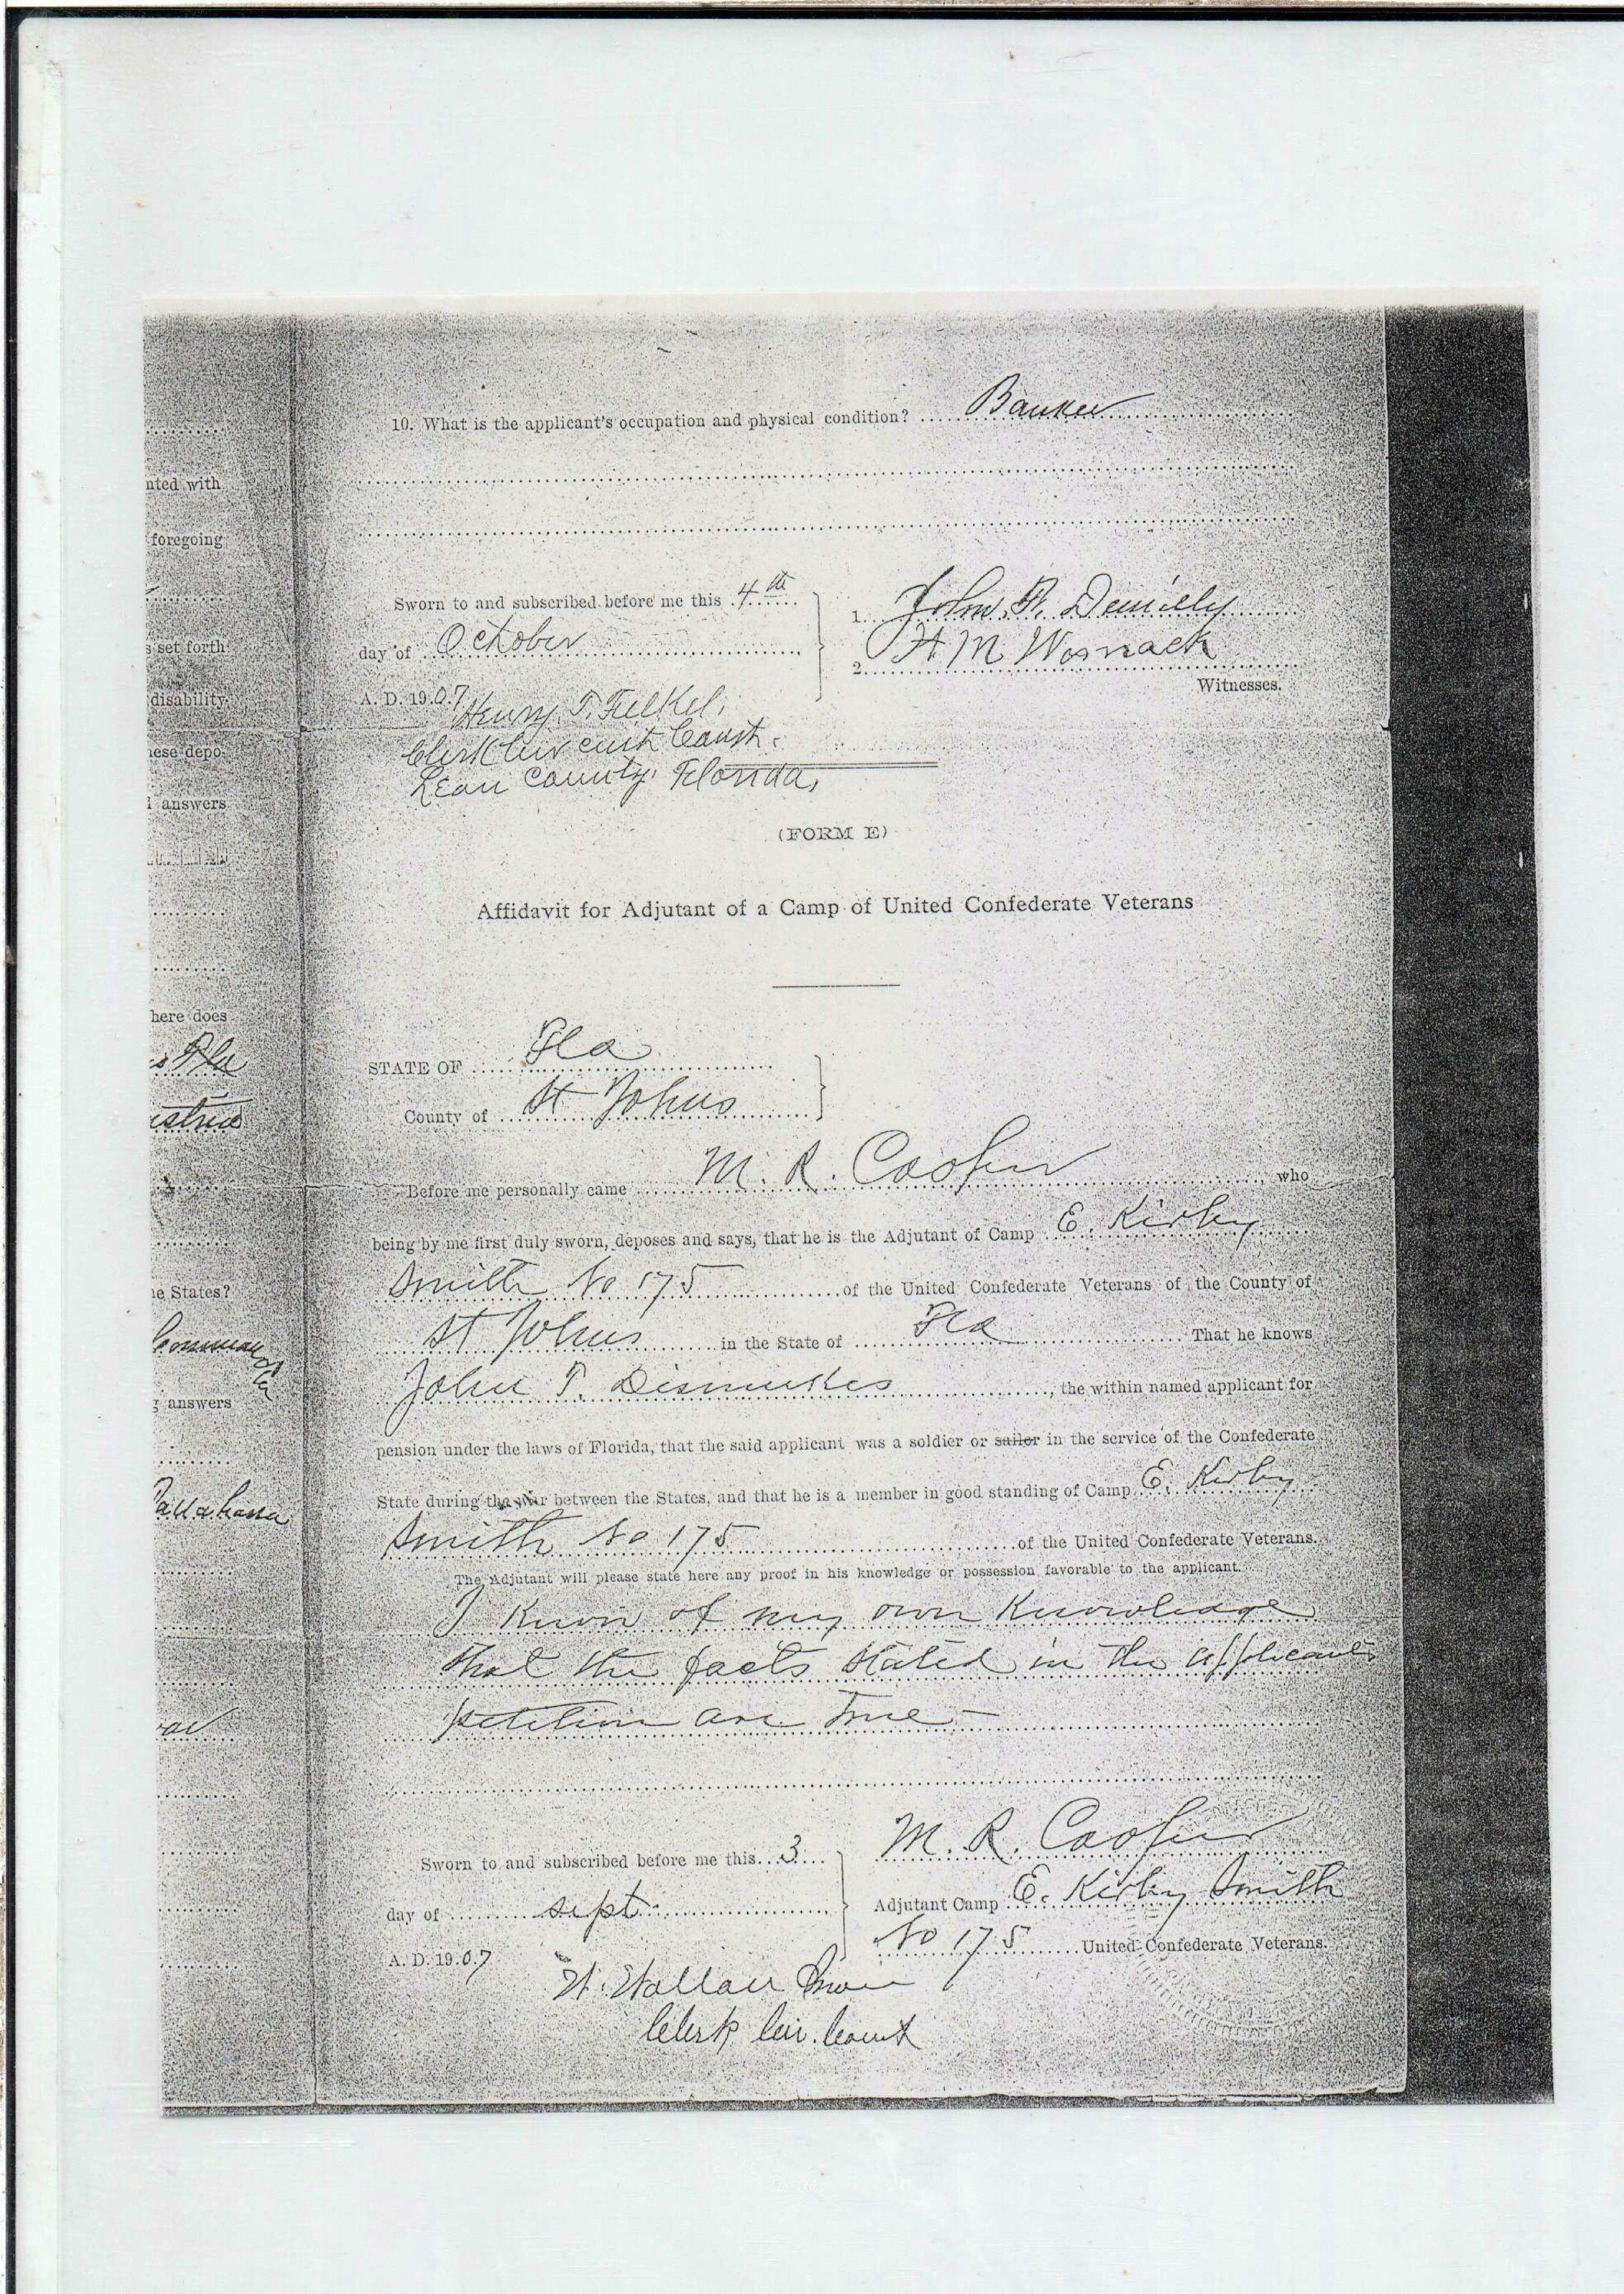 10. What is the applicant's occupation and physical condition? Banker
nted with
foregoing
Sworn to and subscribed before me this 4th
1. John
day of October
2. H M Womack
s set forth
Witnesses.
disability
A. D. 1907
Henry T. Felkel,
Clerk Circuit Court.
ese depo-
Leon County, Florida,
answers
(FORM E)
Affidavit for Adjutant of a Camp of United Confederate Veterans
here does
Fla
STATE OF Fla
County of St Johns
Before me personally came M. R. Cooper, who
being by me first duly sworn, deposes and says, that he is the Adjutant of Camp E. Kirby
Smith No 175 of the United Confederate Veterans of the County of
e States?
St Johns in the State of Fla That he knows
John T. Dismukes, the within named applicant for
answers
pension under the laws of Florida, that the said applicant was a soldier or sailor in the service of the Confederate
State during the war between the States, and that he is a member in good standing of Camp E. Kirby
Smith No 175 of the United Confederate Veterans.
The Adjutant will please state here any proof in his knowledge or possession favorable to the applicant.
I know of my own knowledge
that the facts stated in the applicants
petition are true –
M. R. Cooper
Sworn to and subscribed before me this 3
Adjutant Camp E. Kirby Smith
day of sept
No 175 United Confederate Veterans.
A. D. 1907
Clerk Cir. Court